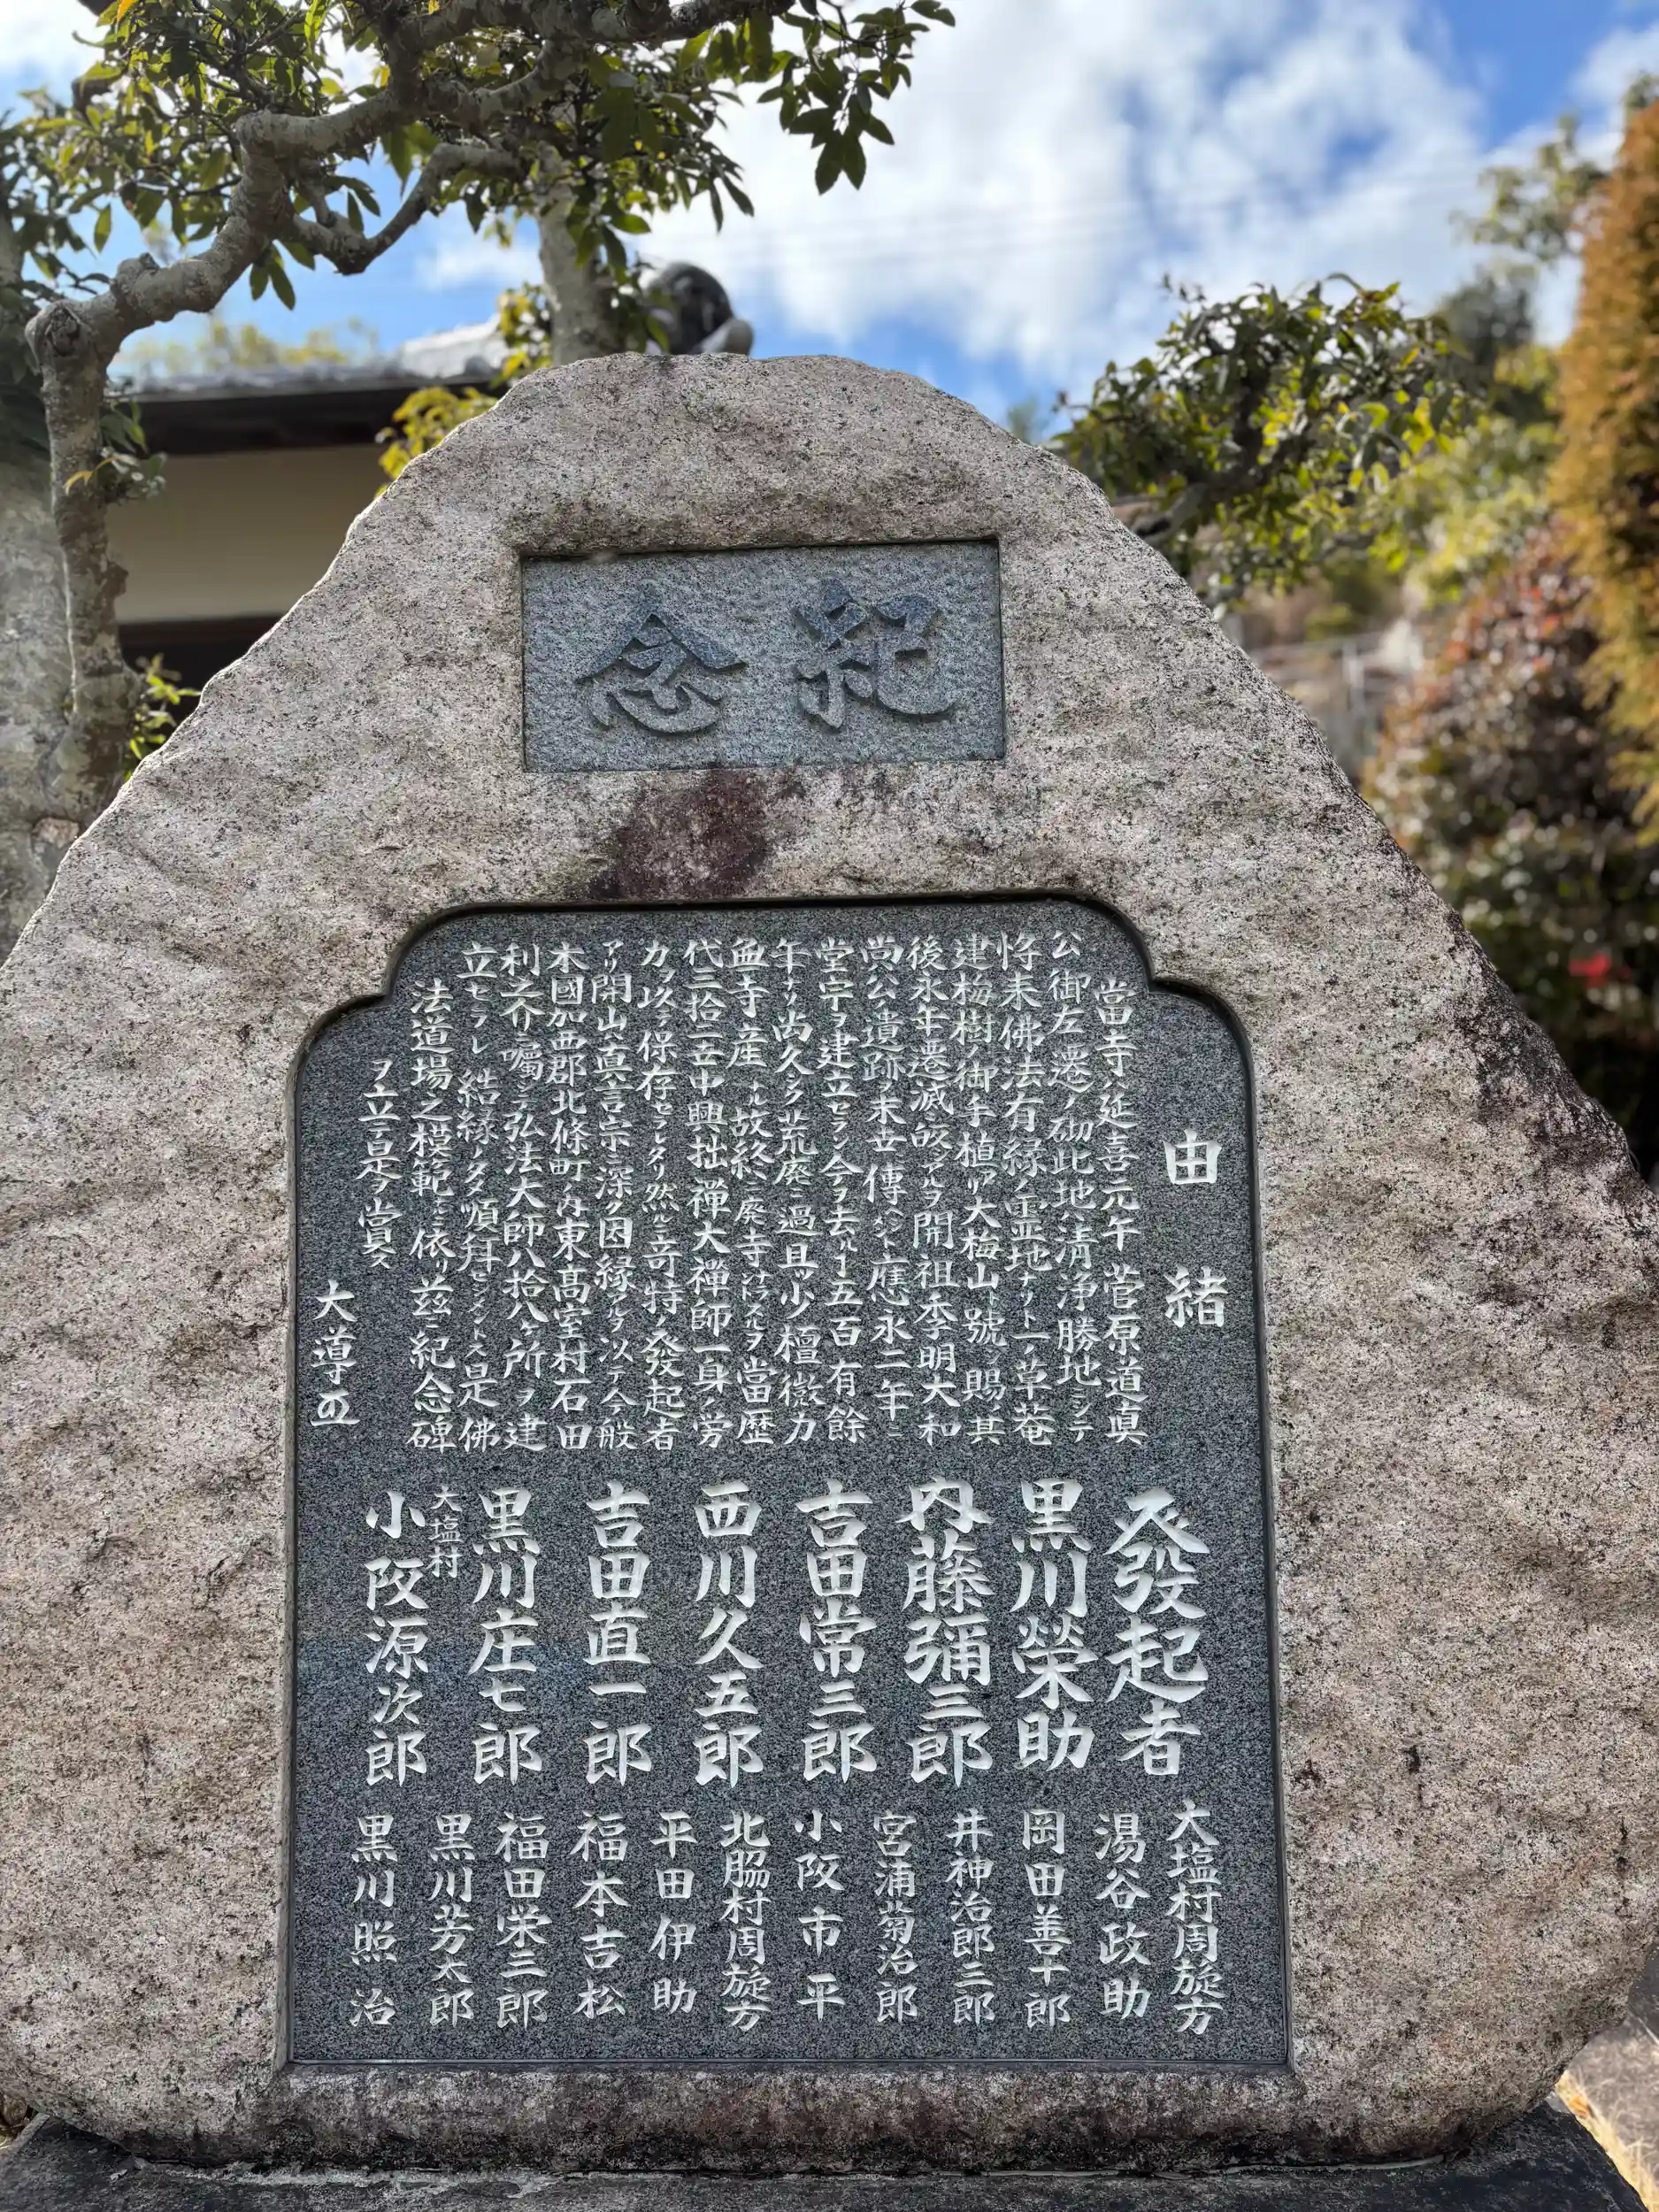 紀念
由緒
當寺ハ延喜元年菅原道眞
公御左遷ノ砌此地清浄勝地ニシテ
将来佛法有縁ノ霊地ナリト一ノ草菴
建梅樹ノ御手植リ大梅山ノ號ヲ賜ノ其
後永年遷滅皈シアルヲ開祖季明大和
尚公遺跡ヲ末世傳ヘント應永二年ニ
堂宇ヲ建立セラレ今ヲ去ルー五百有餘
年ナリ尚久シク荒廃ニ過且ツ少檀微力
無寺産トル故終ニ廃寺ナラントスルヲ當歴
代三拾二世中興拙禅大禅師一身ノ労
力ヲ以テ保存セラレタリ然ルニ竒特ノ發起者
アリ開山眞言宗ニ深ク因縁アルヲ以テ今般
本國加西郡北條町ノ内東髙室村石田
利之介ニ囑シテ弘法大師八拾八ケ所ヲ建
立セラレ結縁ノタメ順拜セシメントス是佛
法道場之模範ナルニ依リ茲ニ紀念碑
ヲ立テ是ヲ賞ス
大導
發起者
黒川榮助
内藤彌三郎
吉田常三郎
西川久五郎
吉田直一郎
黒川庄七郎
大塩村
小阪源次郎
大塩村周旋方
湯谷政助
岡田善十郎
井神治郎三郎
宮浦菊治郎
小阪市平
北脇村周旋方
平田伊助
福本吉松
福田栄三郎
黒川芳太郎
黒川照治